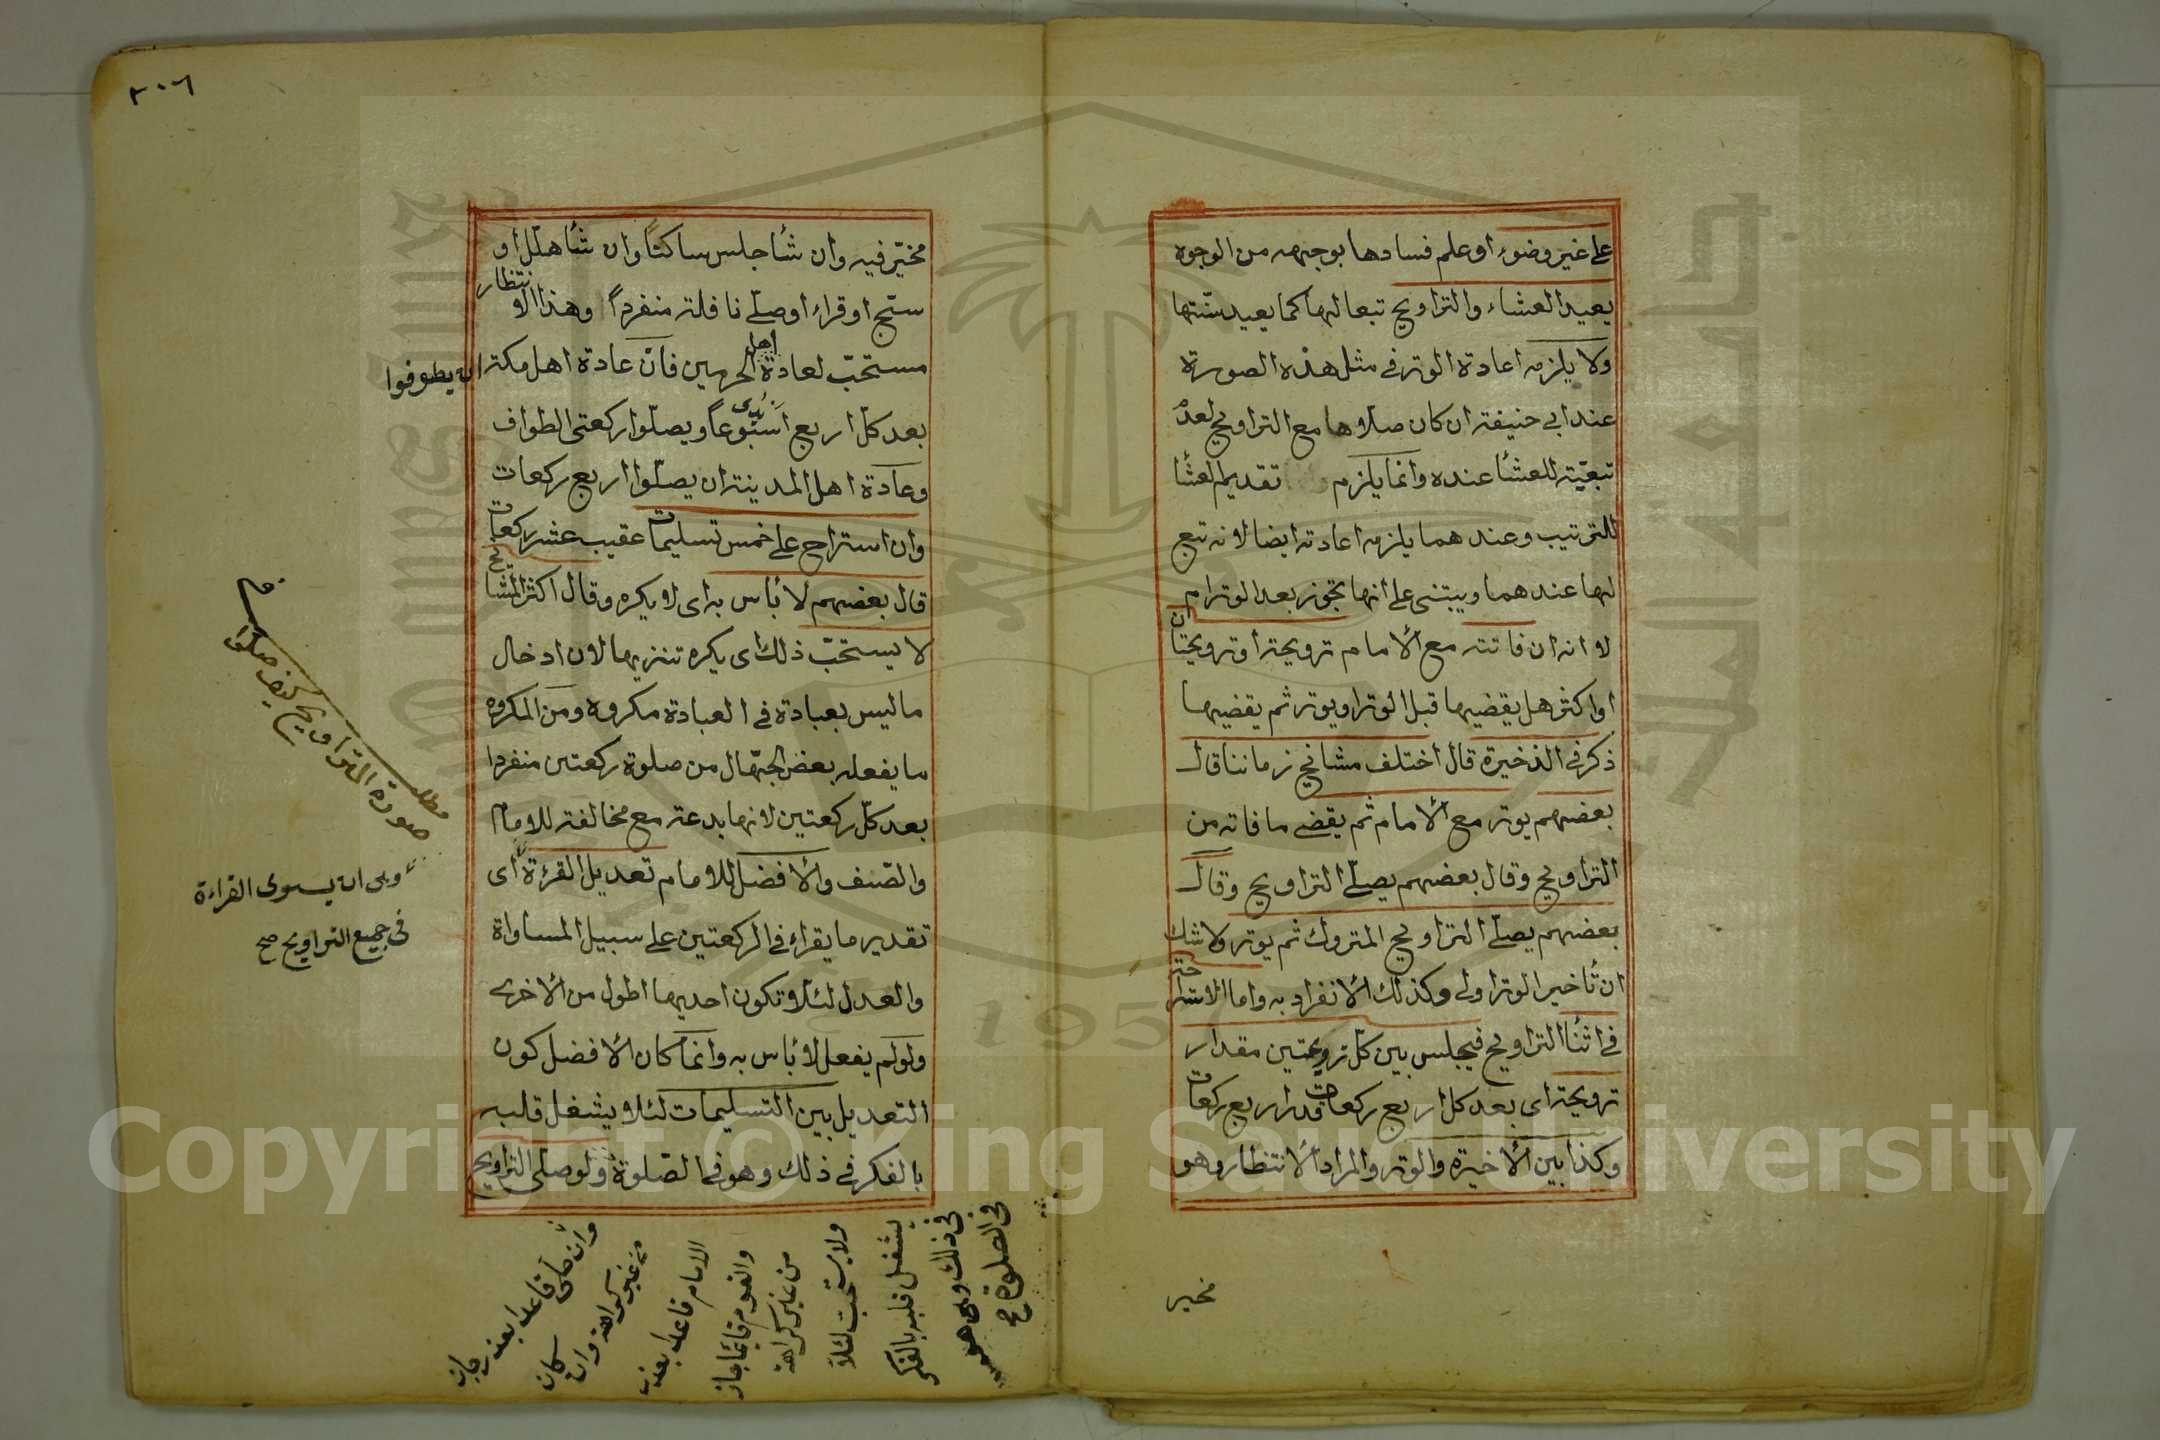 على غير وضوء او علم فسادها بوجه من الوجوه
يعيد العشاء والتراويح تبعا لها كما يعيد سنّتها
ولا يلزمه اعادة الوتر في مثل هذه الصورة
عند ابي حنيفة ان كان صلاها مع التراويح لعدم
تبعيّته للعشا عنده وانما يلزم تقديم العشا
للترتيب وعندهما يلزمه اعادته ايضا لانه تبع
لها عندهما ويبتنى على انها تجوز بعد الوتر ام
لا انه ان فاتته مع الامام ترويحة او ترويحتان
او اكثر هل يقضيها قبل الوتر او يوتر ثم يقضيها
ذكر في الذخيرة قال اختلف مشائخ زماننا قال
بعضهم يوتر مع الامام ثم يقضى ما فاته من
التراويح وقال بعضهم يصلّى التراويح وقال
بعضهم يصلّى التراويح المتروك ثم يوتر ولا شك
ان تأخير الوتر اولى وكذلك الانفراد به واما الاستراحة
في اثنا التراويح فيجلس بين كل ترويحتين مقدار
ترويحة اى بعد كل اربع ركعات قدر اربع ركعات
وكذا بين الاخيرة والوتر والمراد الانتظار وهو
مخير
٢٠٦
مخيّر فيه وان شأ جلس ساكتًا وان شأ هلّل او
سبّح او قراء او صلّى نافلة منفردًا وهذا الانتظار
مستحبّ لعادة اهل الحرمين فانّ عادة اهل مكة ان يطوفوا
بعد كلّ اربع اسبوعًا ويصلّوا ركعتى الطواف
وعادة اهل المدينة ان يصلّوا اربع ركعات
وان استراح على خمس تسليمات عقيب عشر ركعات
قال بعضهم لا بأس به اى لا يكره وقال اكثر المشايخ
لا يستحبّ ذلك اى يكره تنزيها لان ادخال
ما ليس بعبادة في العبادة مكروه ومن المكروه
ما يفعله بعض الجهّال من صلوة ركعتين منفردا
بعد كلّ ركعتين لانها بدعة مع مخالفة للامام
والصّف والافضل للامام تعديل القرءة اى
تقدير ما يقراء في الركعتين على سبيل المساواة
والعدل لئلا تكون احديهما اطول من الاخرى
ولو لم يفعل لا بأس به وانما كان الافضل كون
التعديل بين التسليمات لئلا يشغل قلبه
بالفكر في ذلك وهو في الصّلوة ولو صلى التراويح
مطلب
صورة التراويح كيف صلوا
وهى ان يسوى القراءة
في جميع التراويح صح
في الصلوة صح
في ذلك وهو
يشغل قلبه بالفكر
ولا يستحب لئلا
من غير كراهة
والقوم قائما جاز
الامام قاعدا بعذر
من غير كراهة وان كان
وان صلى قاعدا بعذر جاز